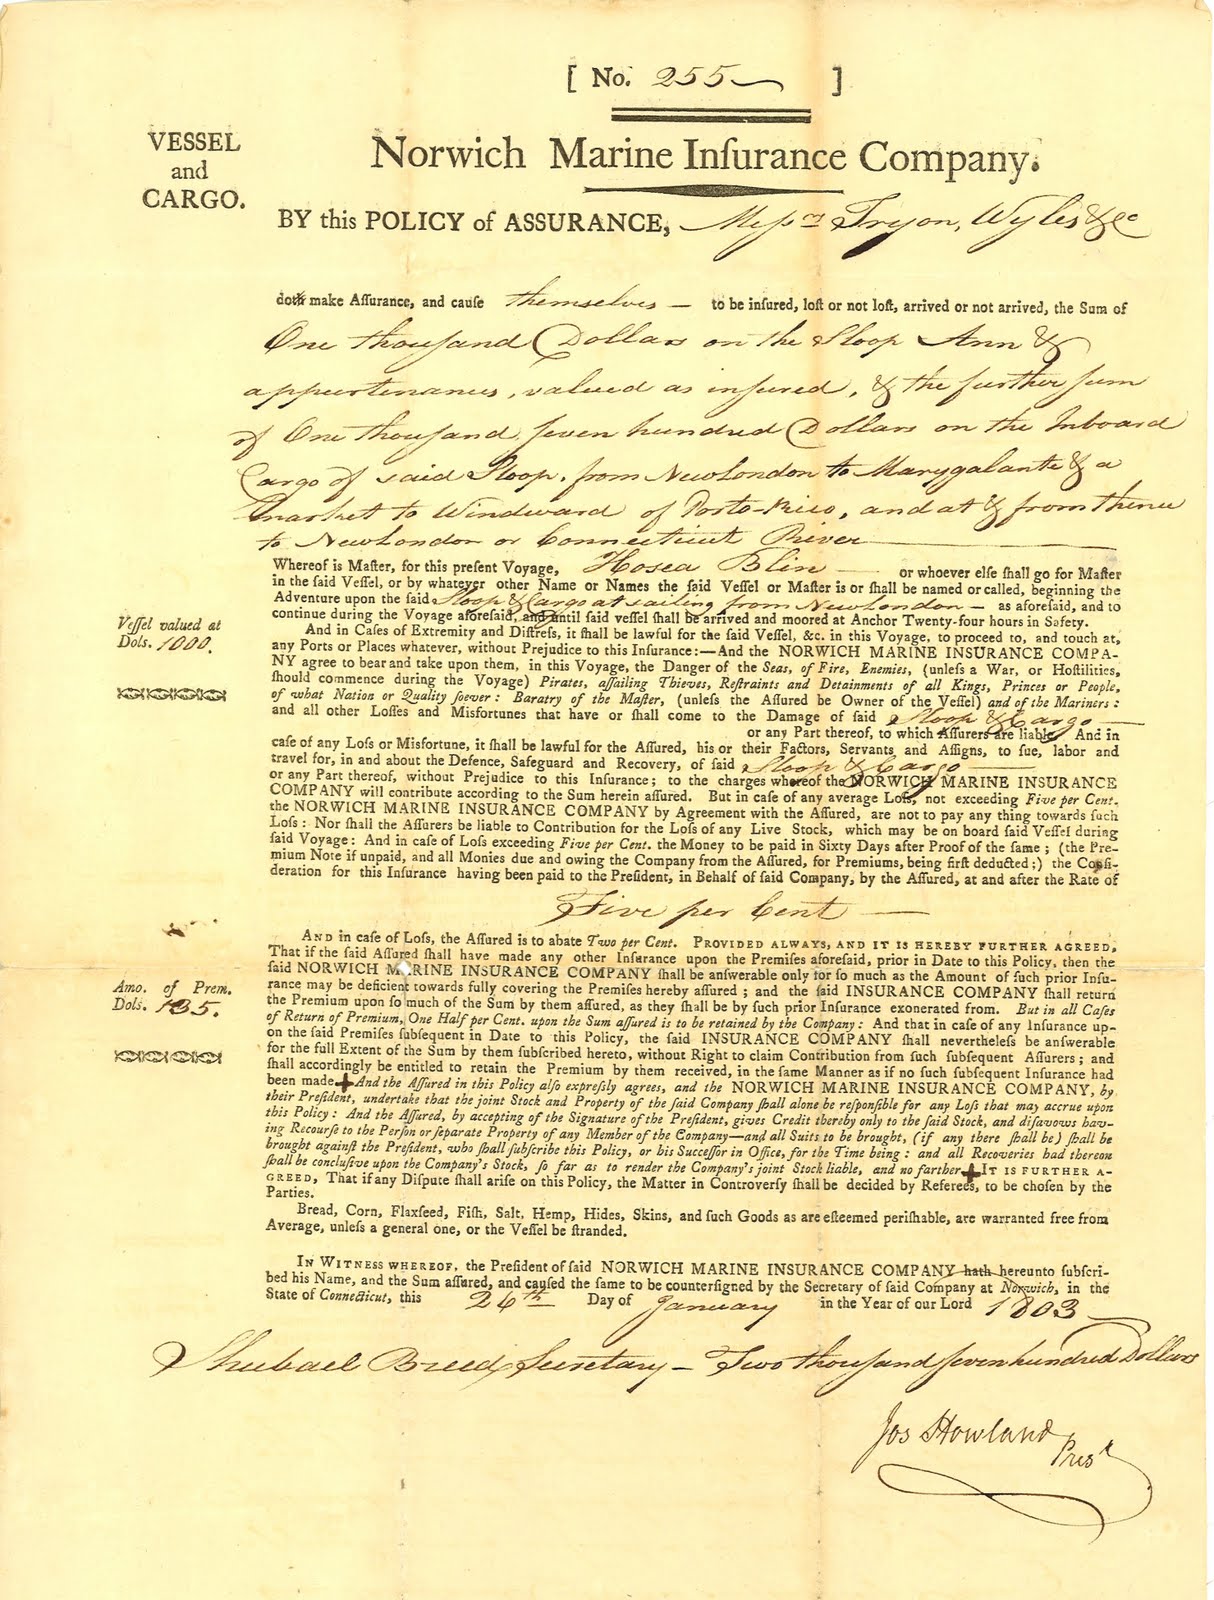 [ No. 255 ]
VESSEL
and
CARGO.
Norwich Marine Inſurance Company.
BY this POLICY of ASSURANCE, Meſsrs Tryon, Wyles &c
doth make Aſſurance, and cauſe themselves — to be inſured, loſt or not loſt, arrived or not arrived, the Sum of
One thouſand Dollars on the Sloop Ann &
appurtenances, valued as inſured, & the further ſum
of One thouſand ſeven hundred Dollars on the Inboard
Cargo of said Sloop, from NewLondon to Marygalante & a
market to Windward of Porto-Rico, and at & from thence
to NewLondon or Connecticut River
Whereof is Maſter, for this preſent Voyage, Hosea Blin — or whoever elſe ſhall go for Maſter
in the ſaid Veſſel, or by whatever other Name or Names the ſaid Veſſel or Maſter is or ſhall be named or called, beginning the
Adventure upon the ſaid Sloop & Cargo at sailing from NewLondon — as aforeſaid, and to
continue during the Voyage aforeſaid, and until ſaid veſſel ſhall be arrived and moored at Anchor Twenty-four hours in Safety.
Veſſel valued at
Dols. 1000.
And in Caſes of Extremity and Diſtreſs, it ſhall be lawful for the ſaid Veſſel, &c. in this Voyage, to proceed to, and touch at,
any Ports or Places whatever, without Prejudice to this Inſurance:—And the NORWICH MARINE INSURANCE COMPA-
NY agree to bear and take upon them, in this Voyage, the Danger of the Seas, of Fire, Enemies, (unleſs a War, or Hoſtilities,
ſhould commence during the Voyage) Pirates, aſſailing Thieves, Reſtraints and Detainments of all Kings, Princes or People,
of what Nation or Quality ſoever: Baratry of the Maſter, (unleſs the Aſſured be Owner of the Veſſel) and of the Mariners:
and all other Loſſes and Misfortunes that have or ſhall come to the Damage of ſaid Sloop & Cargo —
or any Part thereof, to which Aſſurers are liable. And in
caſe of any Loſs or Misfortune, it ſhall be lawful for the Aſſured, his or their Factors, Servants and Aſſigns, to ſue, labor and
travel for, in and about the Defence, Safeguard and Recovery, of ſaid Sloop & Cargo —
or any Part thereof, without Prejudice to this Inſurance; to the charges whereof the NORWICH MARINE INSURANCE
COMPANY will contribute according to the Sum herein aſſured. But in caſe of any average Loſs, not exceeding Five per Cent.
the NORWICH MARINE INSURANCE COMPANY by Agreement with the Aſſured, are not to pay any thing towards ſuch
Loſs: Nor ſhall the Aſſurers be liable to Contribution for the Loſs of any Live Stock, which may be on board ſaid Veſſel during
ſaid Voyage: And in caſe of Loſs exceeding Five per Cent. the Money to be paid in Sixty Days after Proof of the ſame; (the Pre-
mium Note if unpaid, and all Monies due and owing the Company from the Aſſured, for Premiums, being firſt deducted;) the Conſi-
deration for this Inſurance having been paid to the Preſident, in Behalf of ſaid Company, by the Aſſured, at and after the Rate of
Five per Cent —
AND in caſe of Loſs, the Aſſured is to abate Two per Cent. PROVIDED ALWAYS, AND IT IS HEREBY FURTHER AGREED,
That if the ſaid Aſſured ſhall have made any other Inſurance upon the Premiſes aforeſaid, prior in Date to this Policy, then the
ſaid NORWICH MARINE INSURANCE COMPANY ſhall be anſwerable only for ſo much as the Amount of ſuch prior Inſu-
rance may be deficient towards fully covering the Premiſes hereby aſſured; and the ſaid INSURANCE COMPANY ſhall return
the Premium upon ſo much of the Sum by them aſſured, as they ſhall be by ſuch prior Inſurance exonerated from. But in all Caſes
of Return of Premium, One Half per Cent. upon the Sum aſſured is to be retained by the Company: And that in caſe of any Inſurance up-
on the ſaid Premiſes ſubſequent in Date to this Policy, the ſaid INSURANCE COMPANY ſhall nevertheleſs be anſwerable
for the full Extent of the Sum by them ſubſcribed hereto, without Right to claim Contribution from ſuch ſubſequent Aſſurers; and
ſhall accordingly be entitled to retain the Premium by them received, in the ſame Manner as if no ſuch ſubſequent Inſurance had
been made. And the Aſſured in this Policy alſo expreſsly agrees, and the NORWICH MARINE INSURANCE COMPANY, by
their Preſident, undertake that the joint Stock and Property of the ſaid Company ſhall alone be reſponſible for any Loſs that may accrue upon
this Policy: And the Aſſured, by accepting of the Signature of the Preſident, gives Credit thereby only to the ſaid Stock, and diſavows hav-
ing Recourſe to the Perſon or ſeparate Property of any Member of the Company—and all Suits to be brought, (if any there ſhall be) ſhall be
brought againſt the Preſident, who ſhall ſubſcribe this Policy, or his Succeſſor in Office, for the Time being: and all Recoveries had thereon
ſhall be concluſive upon the Company's Stock, ſo far as to render the Company's joint Stock liable, and no farther. IT IS FURTHER A-
GREED, That if any Diſpute ſhall ariſe on this Policy, the Matter in Controverſy ſhall be decided by Referees, to be choſen by the
Parties.
Amo. of Prem.
Dols. 135.
Bread, Corn, Flaxſeed, Fiſh, Salt, Hemp, Hides, Skins, and ſuch Goods as are eſteemed periſhable, are warranted free from
Average, unleſs a general one, or the Veſſel be ſtranded.
IN WITNESS WHEREOF, the Preſident of ſaid NORWICH MARINE INSURANCE COMPANY hath hereunto ſubſcri-
bed his Name, and the Sum aſſured, and cauſed the ſame to be counterſigned by the Secretary of ſaid Company at Norwich, in the
State of Connecticut, this 26th Day of January in the Year of our Lord 1803
Shubael Breed Secretary — Two thouſand ſeven hundred Dollars
Jos Howland
Prest